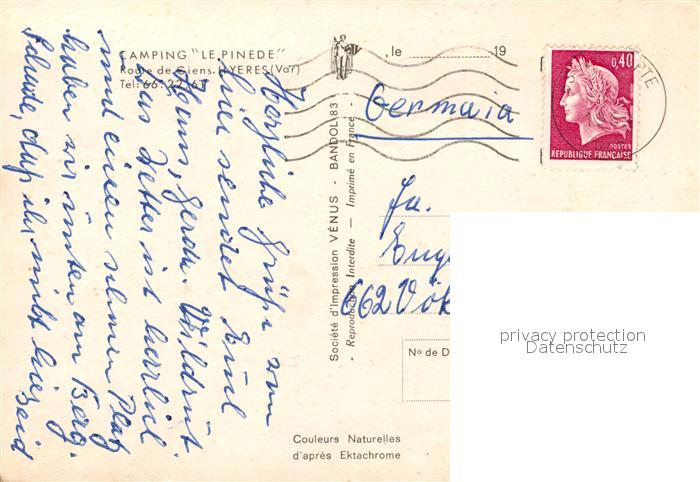 CAMPING "LE PINEDE"
Route de Giens. HYERES (Var)
Tel: 66.22.67
, le 19
Herzliche Grüße von
hier sendet Emil
Heens, Gerda. Wildrut
Das Wetter ist herrlich
und einen schönen Platz
haben wir unten am Berg.
Schade, daß ihr nicht hier seid
Société d'impression VÉNUS - BANDOL.83
- Reproduction Interdite — Imprimé en France -
Germaia
0,40
POSTES
REPUBLIQUE FRANÇAISE
PTE
Fa.
Euge
662 Völ
privacy protection
Datenschutz
No de D
Couleurs Naturelles
d'après Ektachrome